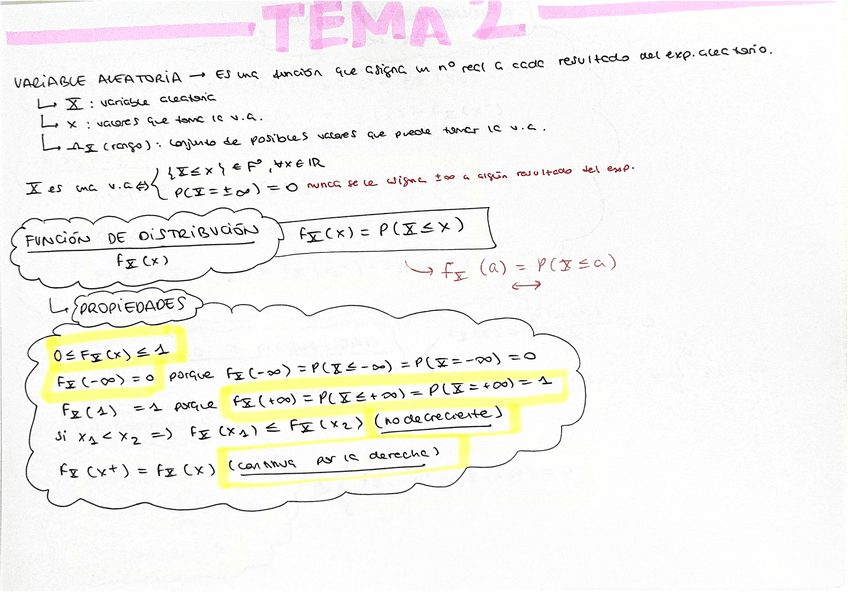 TEMA 2
VARIABLE ALEATORIA → Es una función que asigna un nº real a cada resultado del exp. aleatorio.
↳ X : variable aleatoria
↳ x : valores que toma la v.a.
↳ Ω_X (rango) : conjunto de posibles valores que puede tomar la v.a.
X es una v.a ⇔ { {X ≤ x} ∈ F, ∀x ∈ ℝ
P(X = ±∞) = 0 nunca se le asigna ±∞ a algún resultado del exp.
FUNCIÓN DE DISTRIBUCIÓN
F_X(x)
F_X(x) = P(X ≤ x)
↳ F_X (a) = P(X ≤ a)
↔
↳ PROPIEDADES
0 ≤ F_X(x) ≤ 1
F_X(-∞) = 0 porque F_X(-∞) = P(X ≤ -∞) = P(X = -∞) = 0
F_X(1) = 1 porque F_X(+∞) = P(X ≤ +∞) = P(X = +∞) = 1
si x1 < x2 => F_X(x1) ≤ F_X(x2) (no decreciente)
F_X(x+) = F_X(x) (continua por la derecha)